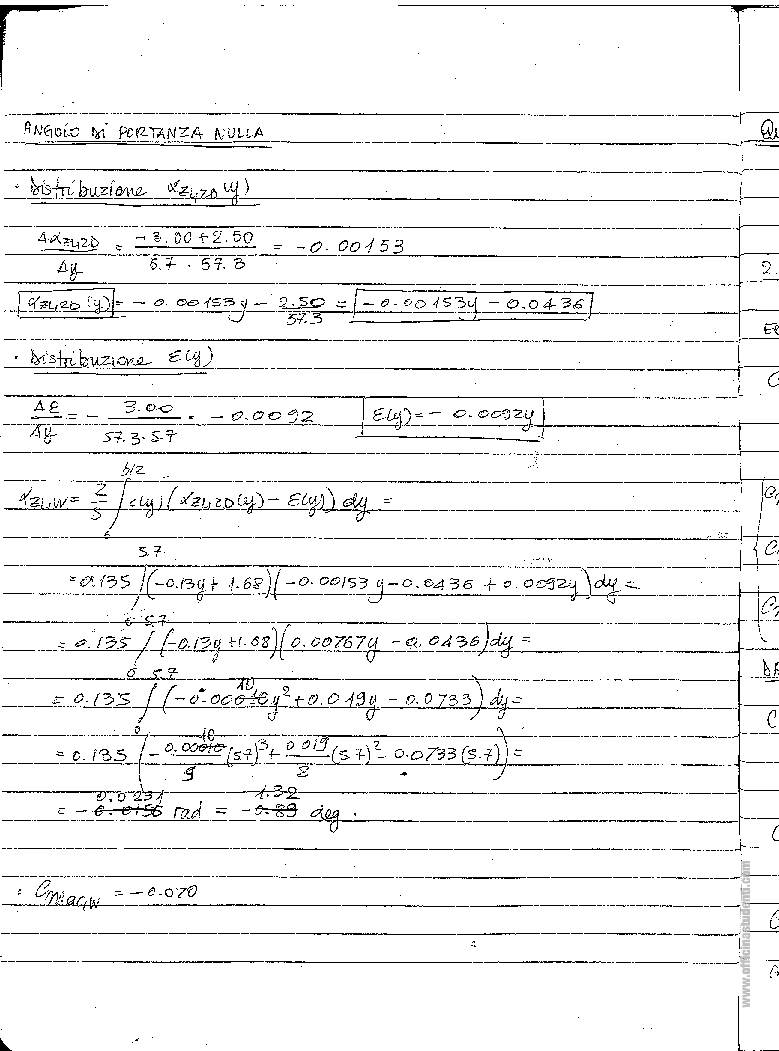 ANGOLO DI PORTANZA NULLA
· Distribuzione αZL,2D(y)
ΔαZL,2D / Δy = (-3.00 + 2.50) / (5.7 · 57.3) = -0.00153
αZL,2D(y) = -0.00153y - 2.50/57.3 = -0.00153y - 0.0436
· Distribuzione ε(y)
Δε/Δy = - 3.00 / (57.3 · 5.7) = -0.0092   ε(y) = -0.0092y
αZL,W = 2/S ∫₀^(b/2) c(y) (αZL,2D(y) - ε(y)) dy =
= 0.135 ∫₀^5.7 (-0.13y + 1.68)(-0.00153y - 0.0436 + 0.0092y) dy =
= 0.135 ∫₀^5.7 (-0.13y + 1.68)(0.00767y - 0.0436) dy =
= 0.135 ∫₀^5.7 (-0.0010y² + 0.019y - 0.0733) dy =
= 0.135 (-0.0010/3 (5.7)³ + 0.019/2 (5.7)² - 0.0733(5.7)) =
= -0.0231 rad = -1.32 deg.
: Cm,ac,W = -0.070
Qu
2.
www.officinastudenti.com